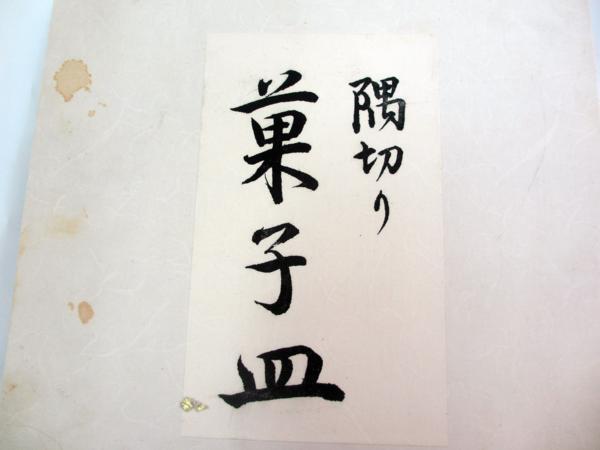 隅切り
菓子皿